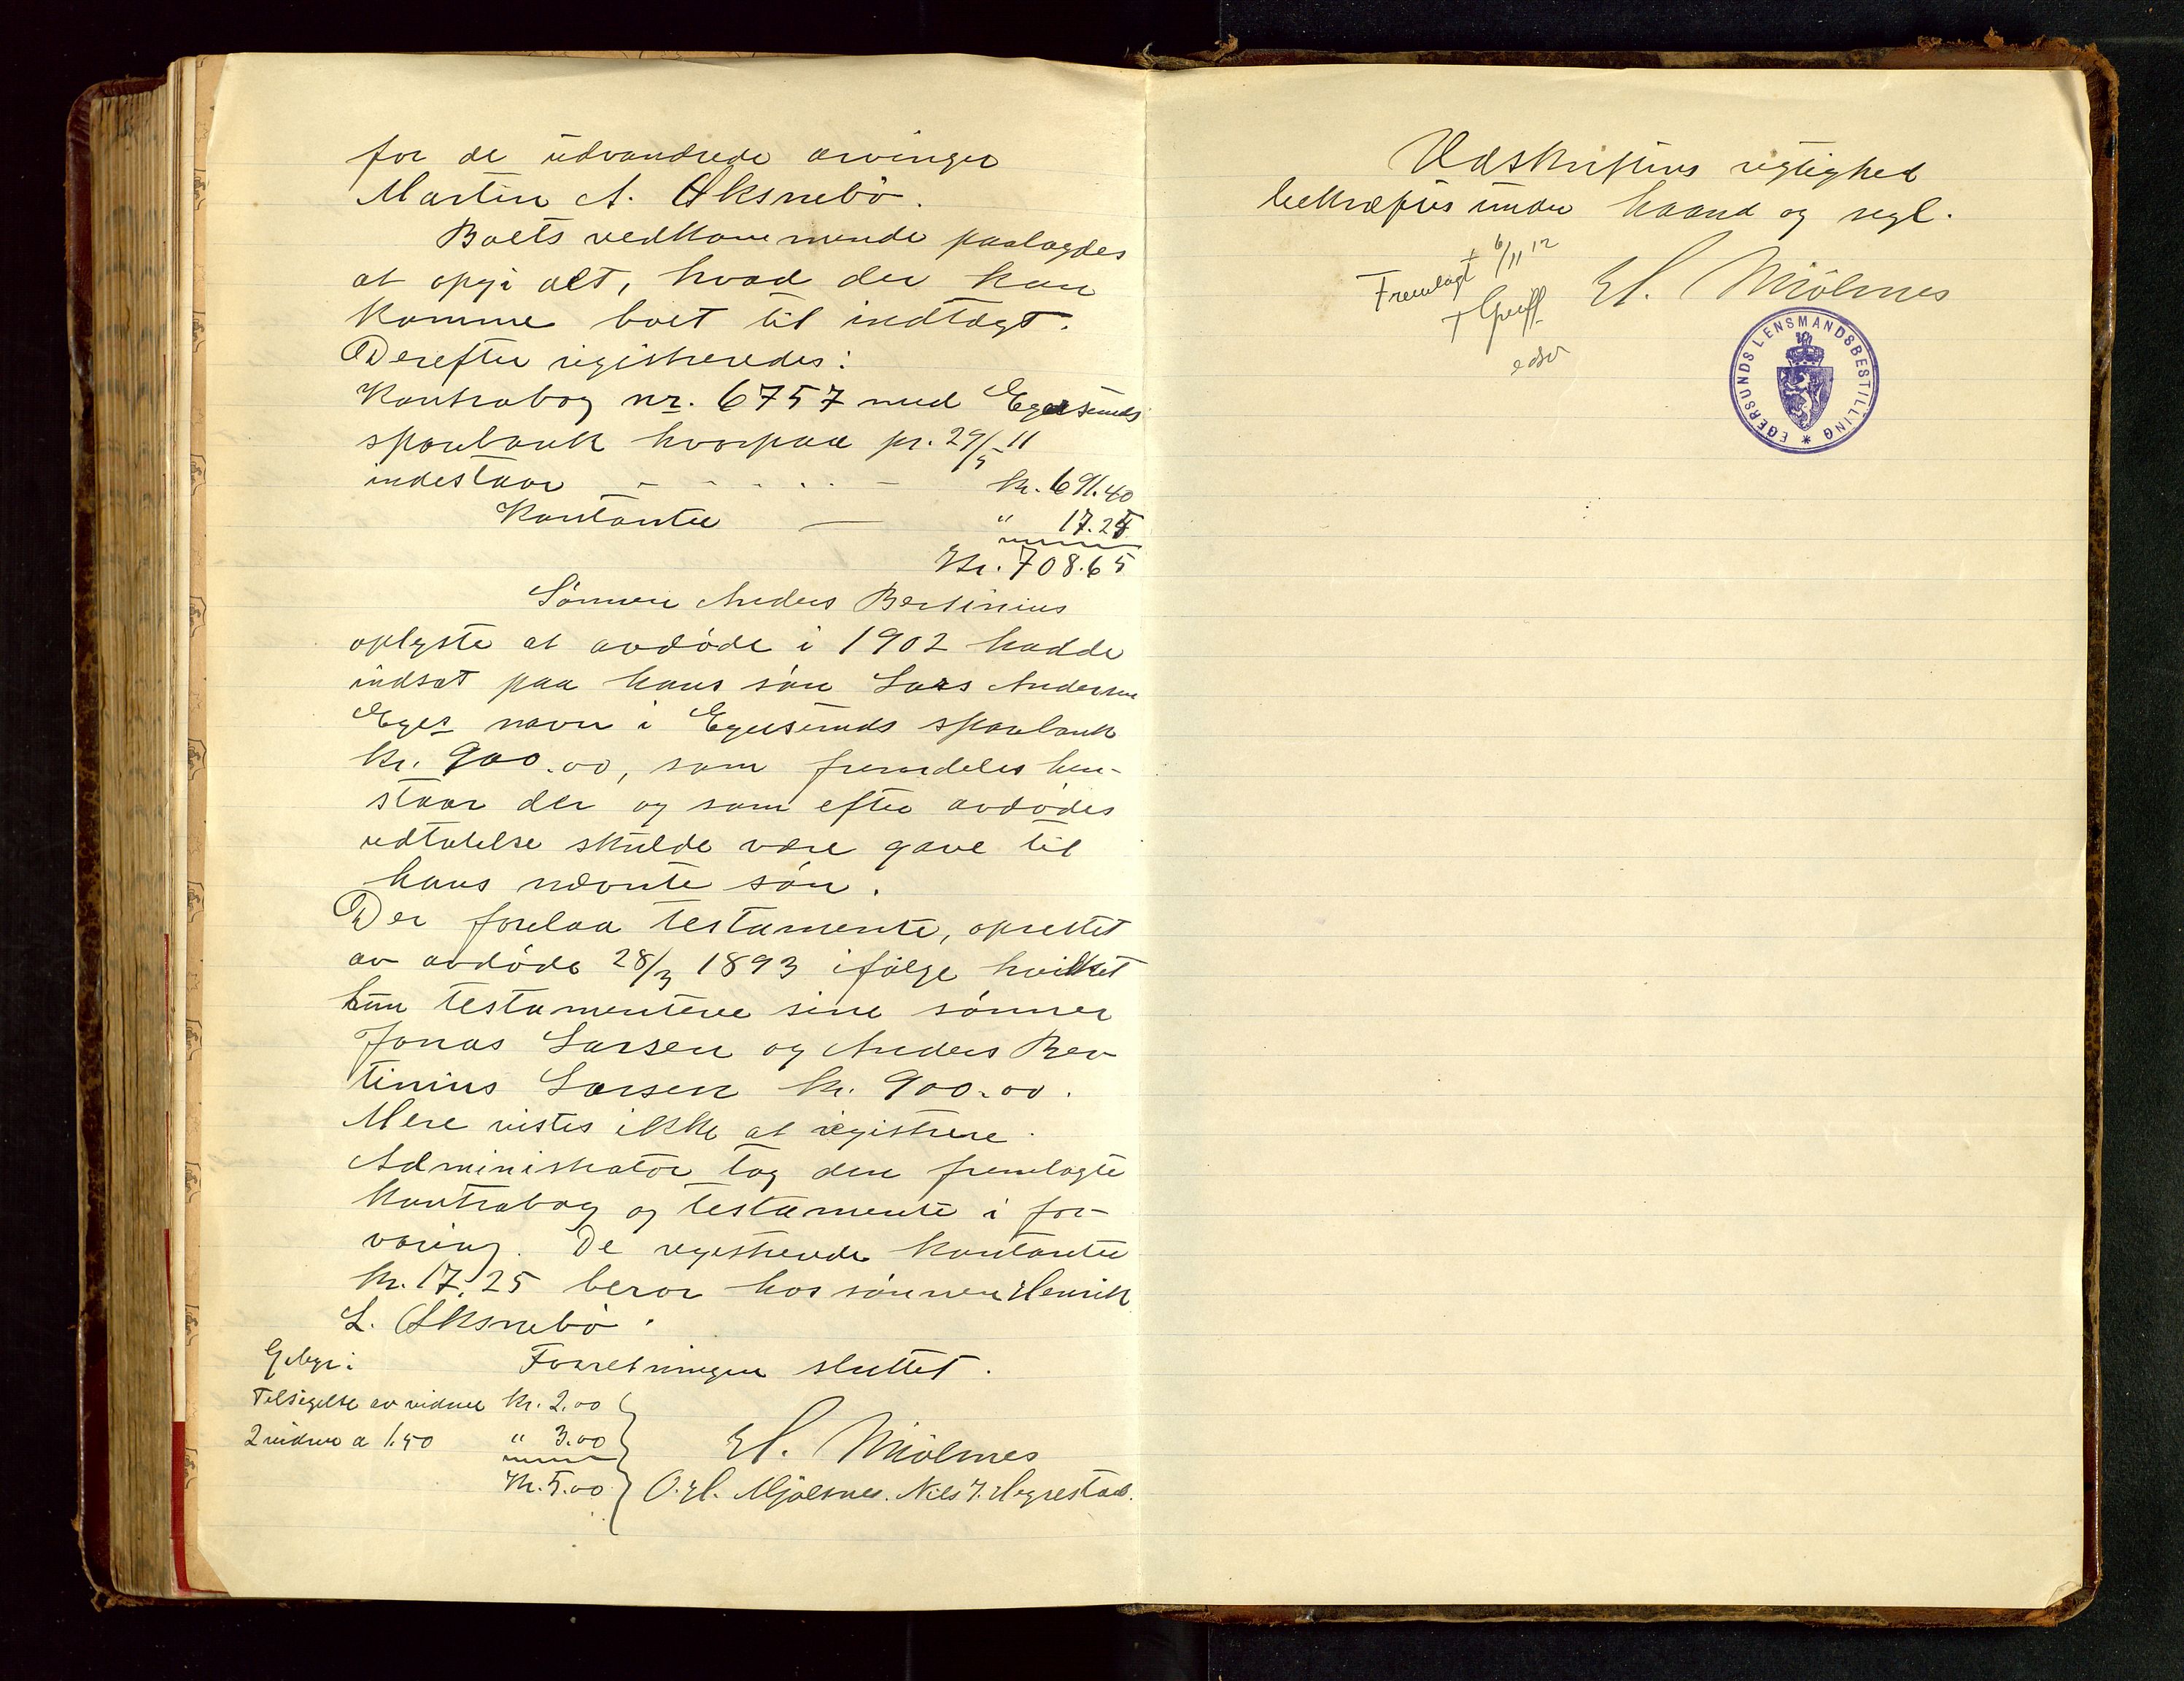 for de udvandrede arvinger
Martin A. Øksnebø.
Boets vedkommende paalagdes
at opgi alt, hvad der kan
komme boet til indtægt.
Derefter registreredes:
Kontrabog nr. 6757 med Egersunds
sparebank hvorpaa pr. 29/5 11
indestaar - - - . . - kr. 691.40
Kontanter — " 17.25
Kr. 708.65
Sønnen Anders Bertinius
oplyste at avdøde i 1902 hadde
indsat paa hans søn Lars Andersen
Eges navn i Egersunds sparebank
kr. 900.00, som fremdeles hen-
staar der og som efter avdødes
udtalelse skulde være gave til
hans nævnte søn.
Der forelaa testamente, oprettet
av avdøde 28/3 1893 ifølge hvilket
hun testamenterer sine sønner
Jonas Larsen og Anders Ber-
tinius Larsen kr. 900.00.
Mere vistes ikke at registrere.
Administrator tog den fremlagte
kontrabog og testamente i for-
varing. De registrerede kontanter
kr. 17.25 beror hos sønnen Henrik
L. Øksnebø.
Gebyr: Forretningen sluttet.
Tilsigelse av vidner kr. 2.00
2 vidner a 1.50 " 3.00 H. Mjølsnes
Kr. 5.00 O. H. Mjølsnes. Nils J. Hegrestad.
Udskriftens rigtighed
bekræftes under haand og segl.
Fremlagt 6/11 12
H. Mjølsnes
EGERSUNDS LENSMANDSBESTILLING *